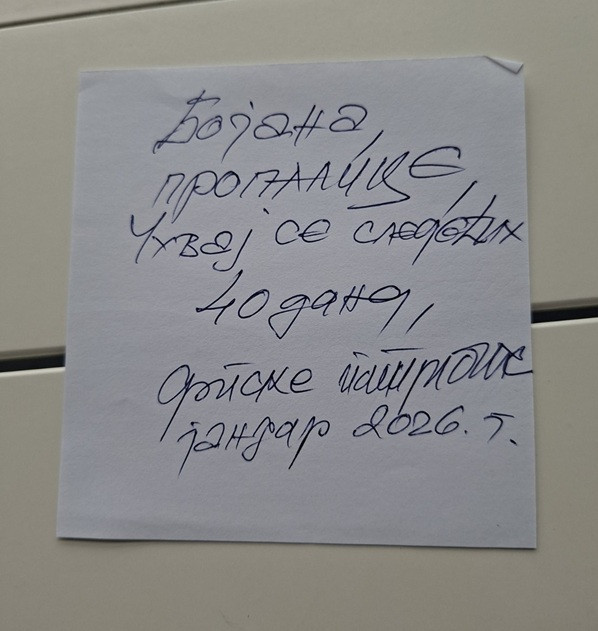 Бојана,
пропалице,
Чувај се следећих
40 дана,
српске патриоте
јануар 2026. г.